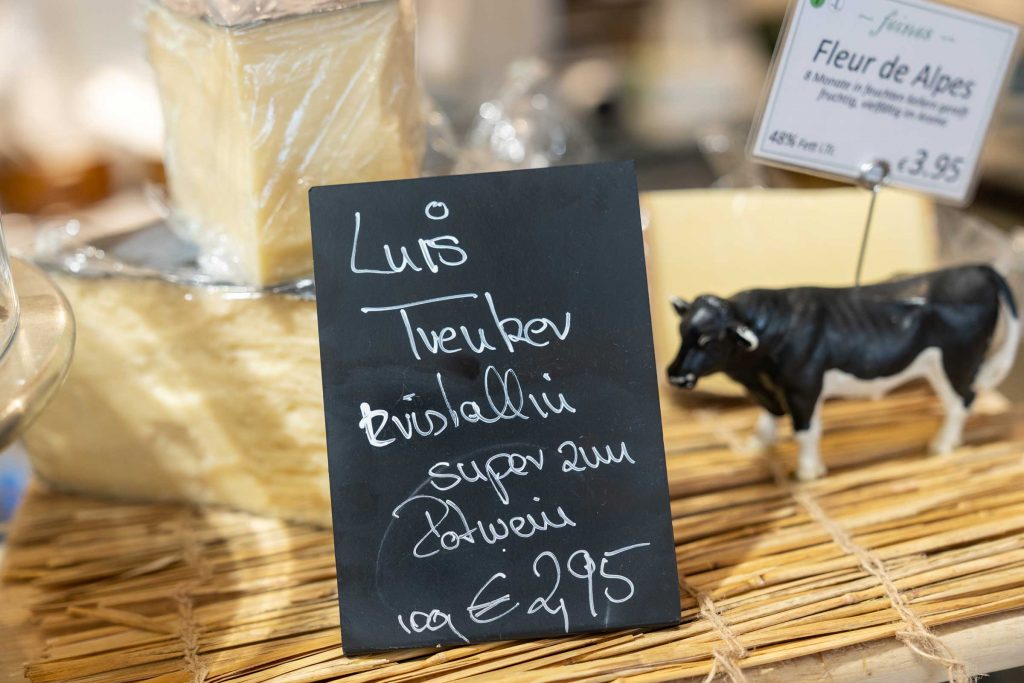 Luis
Trenker
kristallin
super zum
Rotwein
100g € 2,95
feines
Fleur de Alpes
8 Monate in feuchten Kellern gereift
fruchtig, vielfältig im Aroma
48% Fett i.Tr.
€3.95